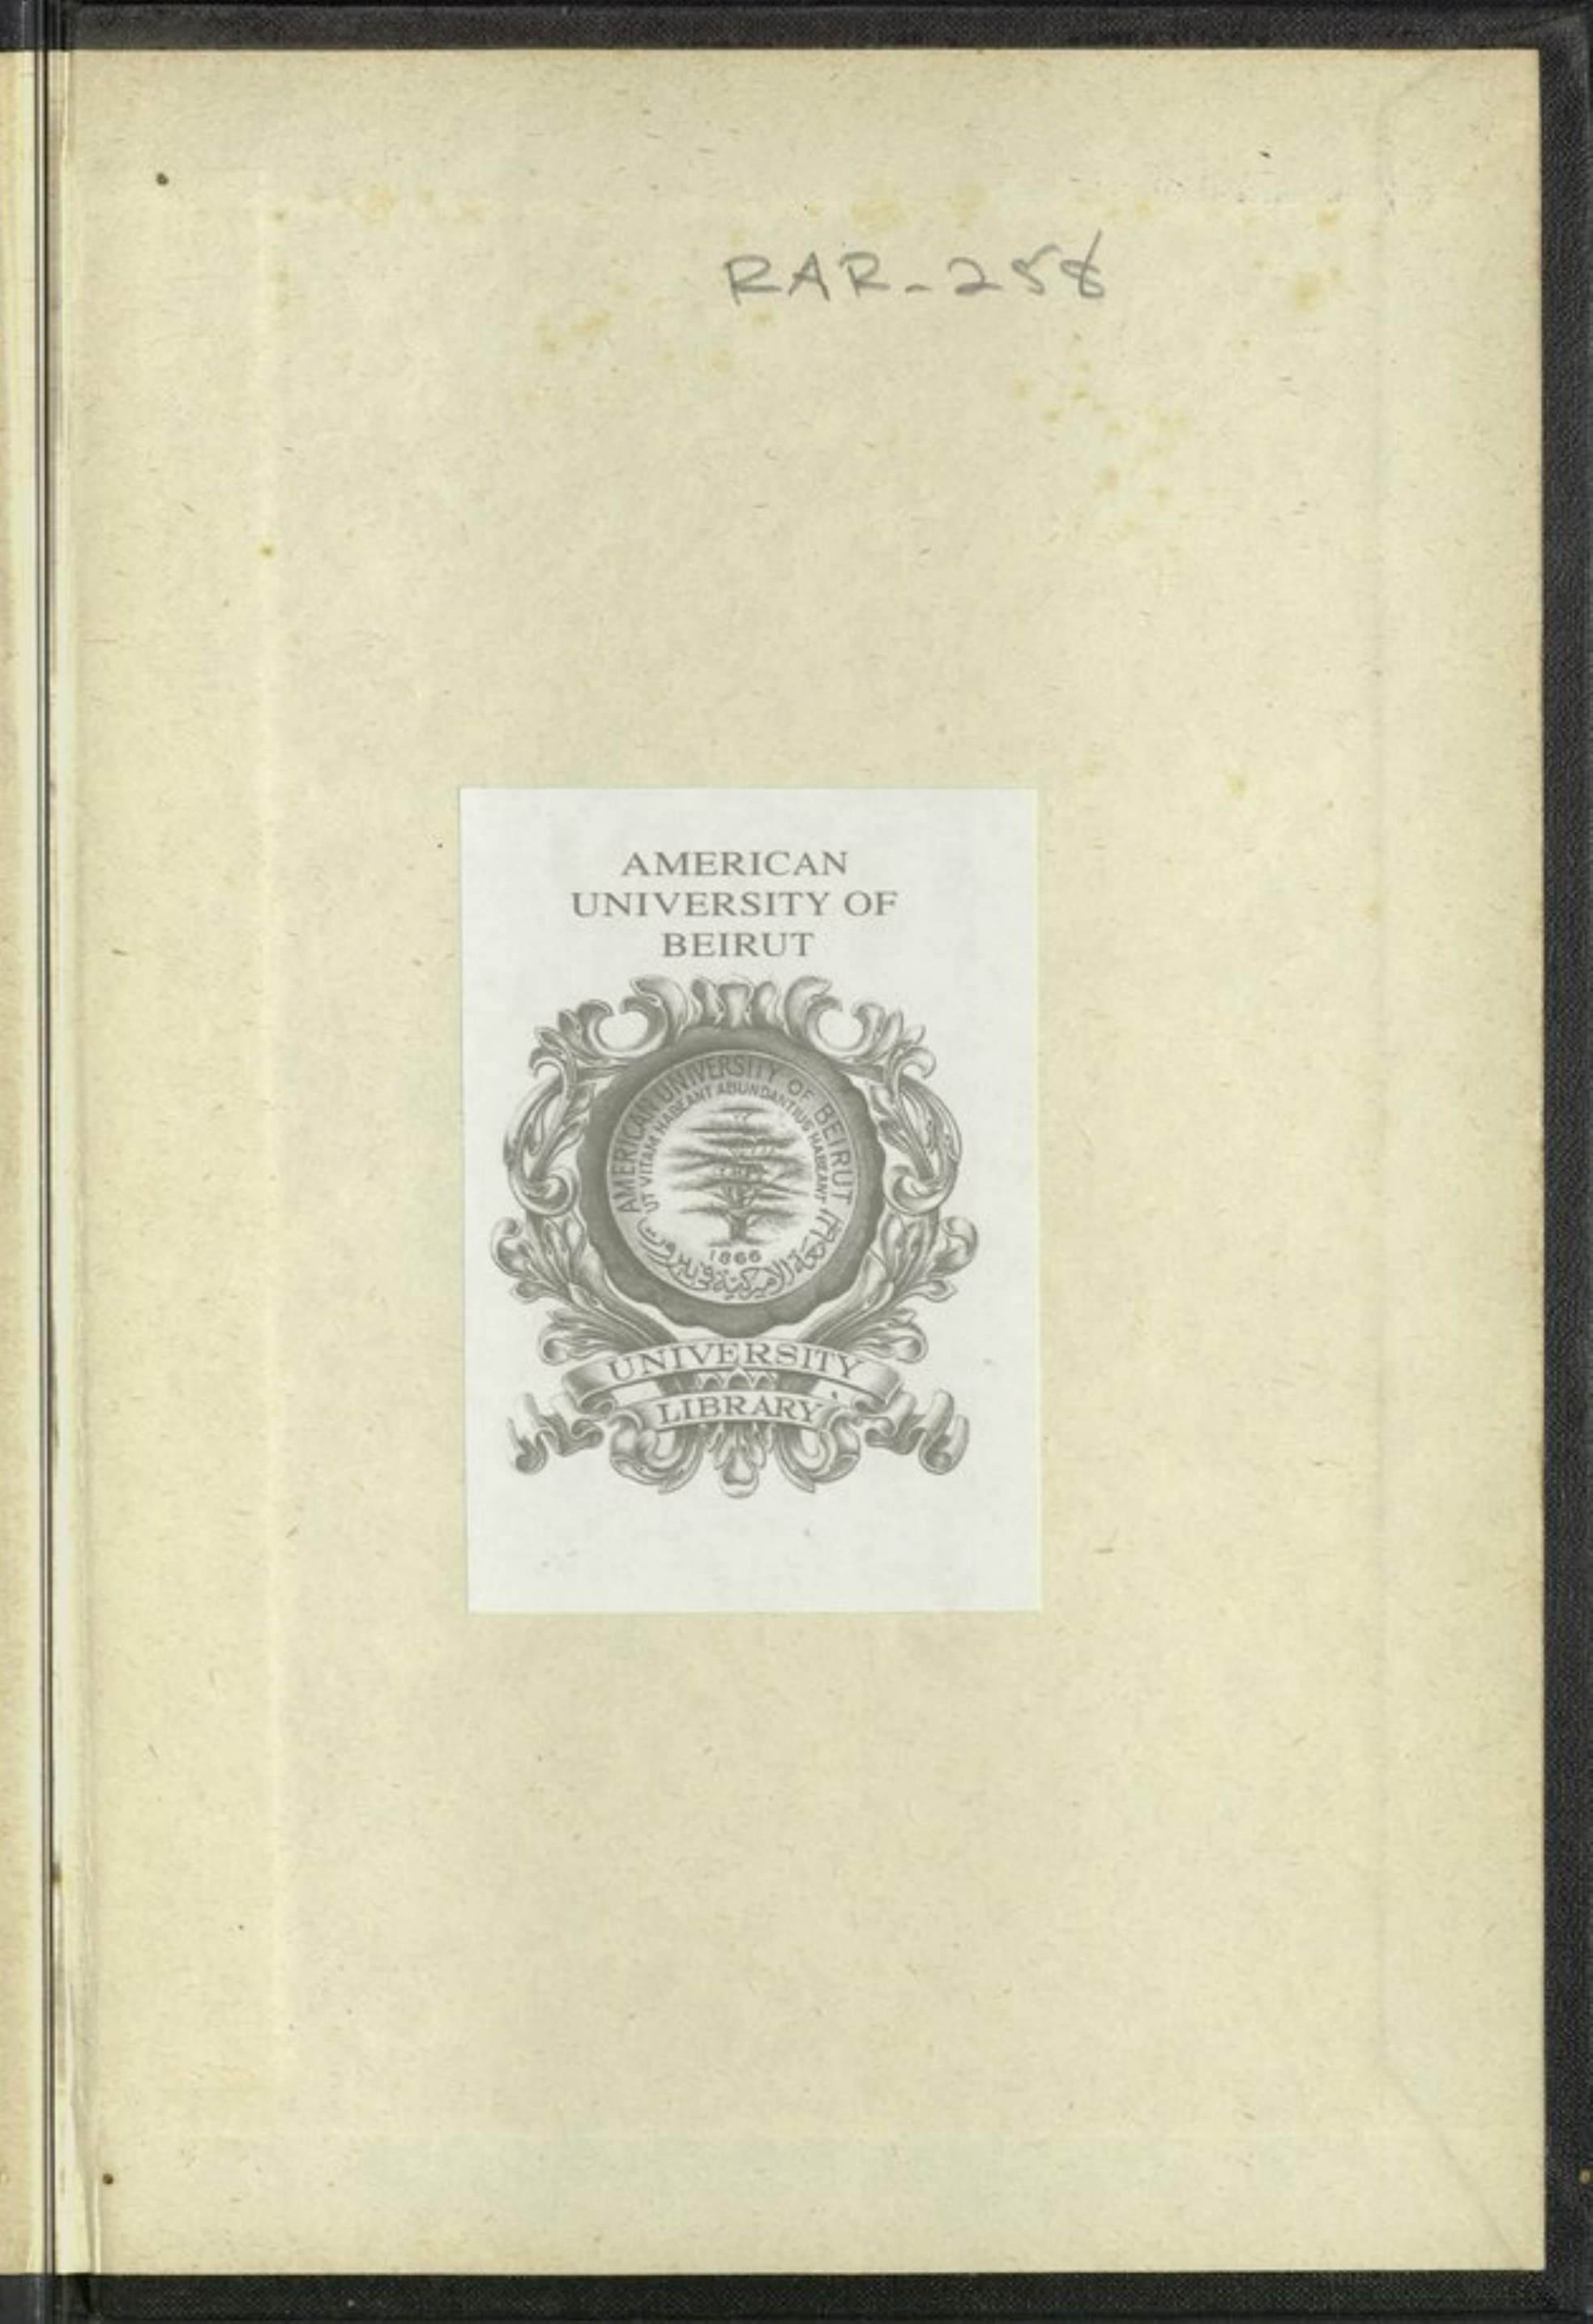 RAR-258
AMERICAN
UNIVERSITY OF
BEIRUT
AMERICAN UNIVERSITY OF BEIRUT
UT VITAM HABEANT ABUNDANTIUS HABEANT
1866
الجامعة الاميركية في بيروت
UNIVERSITY
LIBRARY